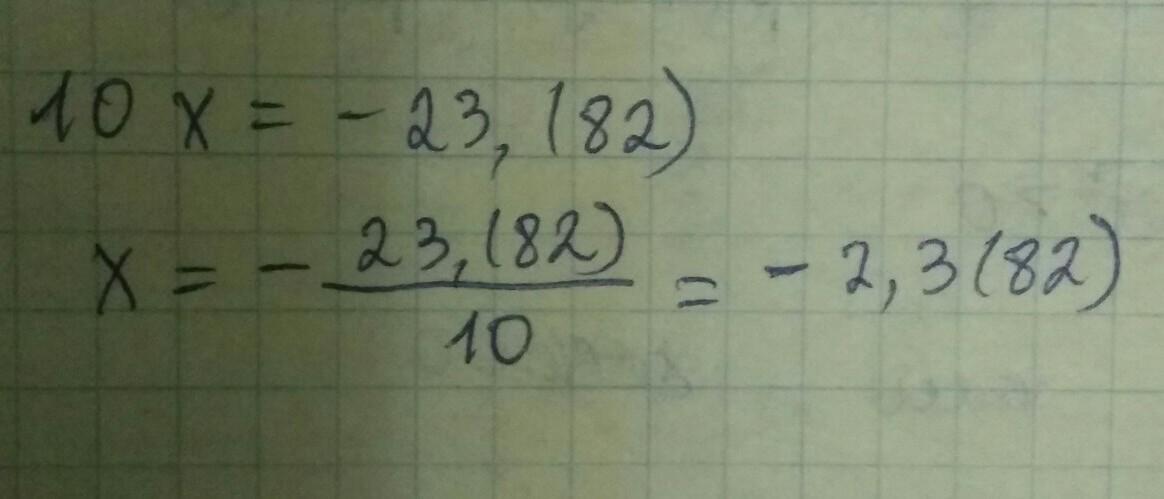 10 x = - 23, (82)
x = - 23,(82) / 10 = - 2,3(82)